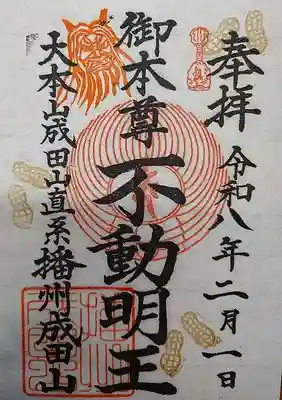 奉拝 令和八年二月一日
御本尊 不動明王
大本山成田山直系播州成田山